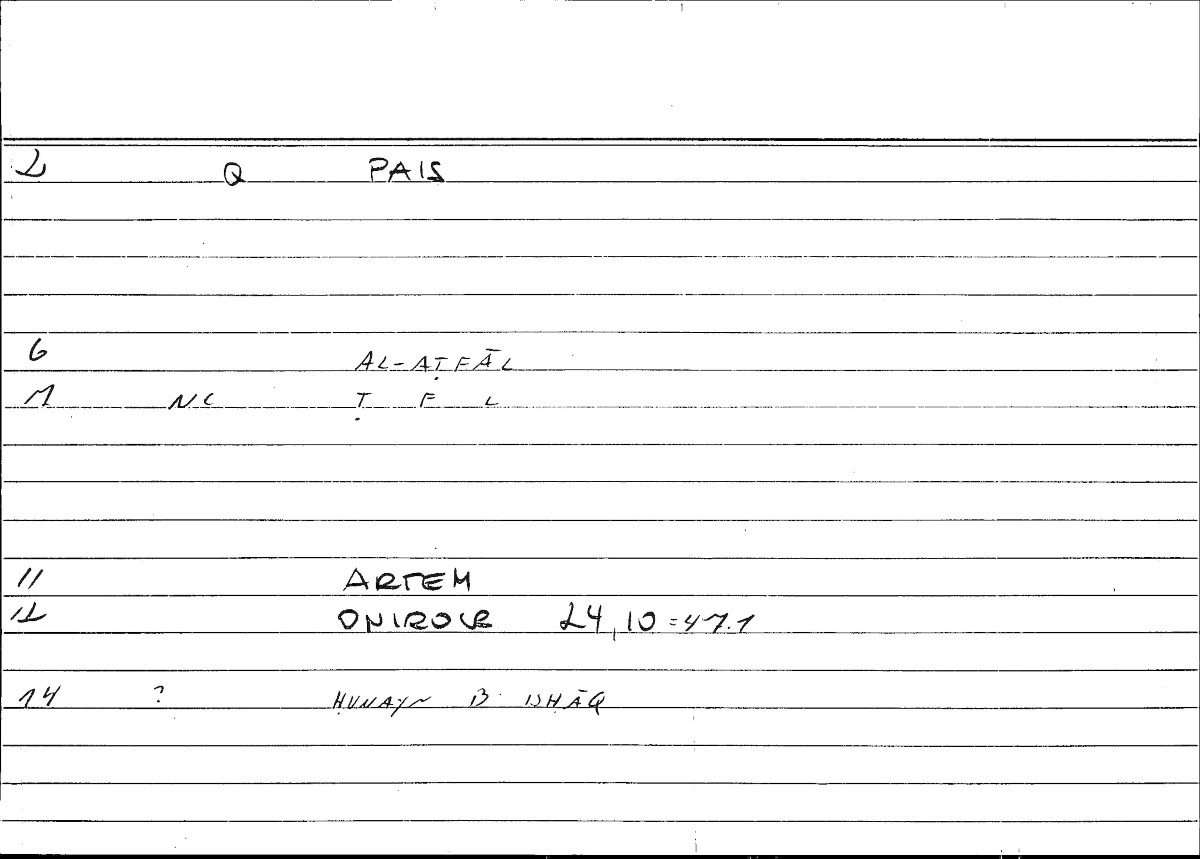 2 Q PAIS
6 AL-AṬFĀL
7 NC Ṭ F L
11 ARTEM
12 ONIROCR 24,10=47.1
14 ? ḤUNAYN B. ISḤĀQ